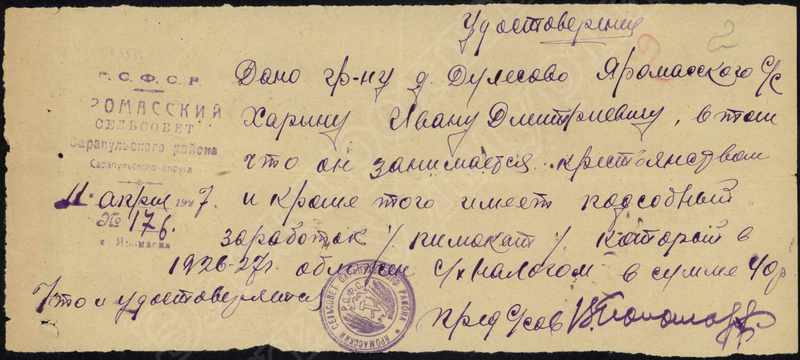 Удостоверение
2
Р.С.Ф.С.Р
РОМАССКИЙ
СЕЛЬСОВЕТ
Сарапульского района
Сарапульского округа
11 апрел 1927.
№ 176.
с. Яромаска
Дано гр-ну д. Дулесово Яромасского С/С
Харину Ивану Дмитриевичу, в том
что он занимается крестьянством
и кроме того имеет подсобный
заработок / пимокат /. который в
1926-27г. обложен с/х налогом в сумме 40р
Что и удостоверяется
пред С/сов
ЯРОМАССКИЙ СЕЛЬСОВЕТ САРАПУЛЬСКОГО РАЙОНА
Р.С.Ф.С.Р.